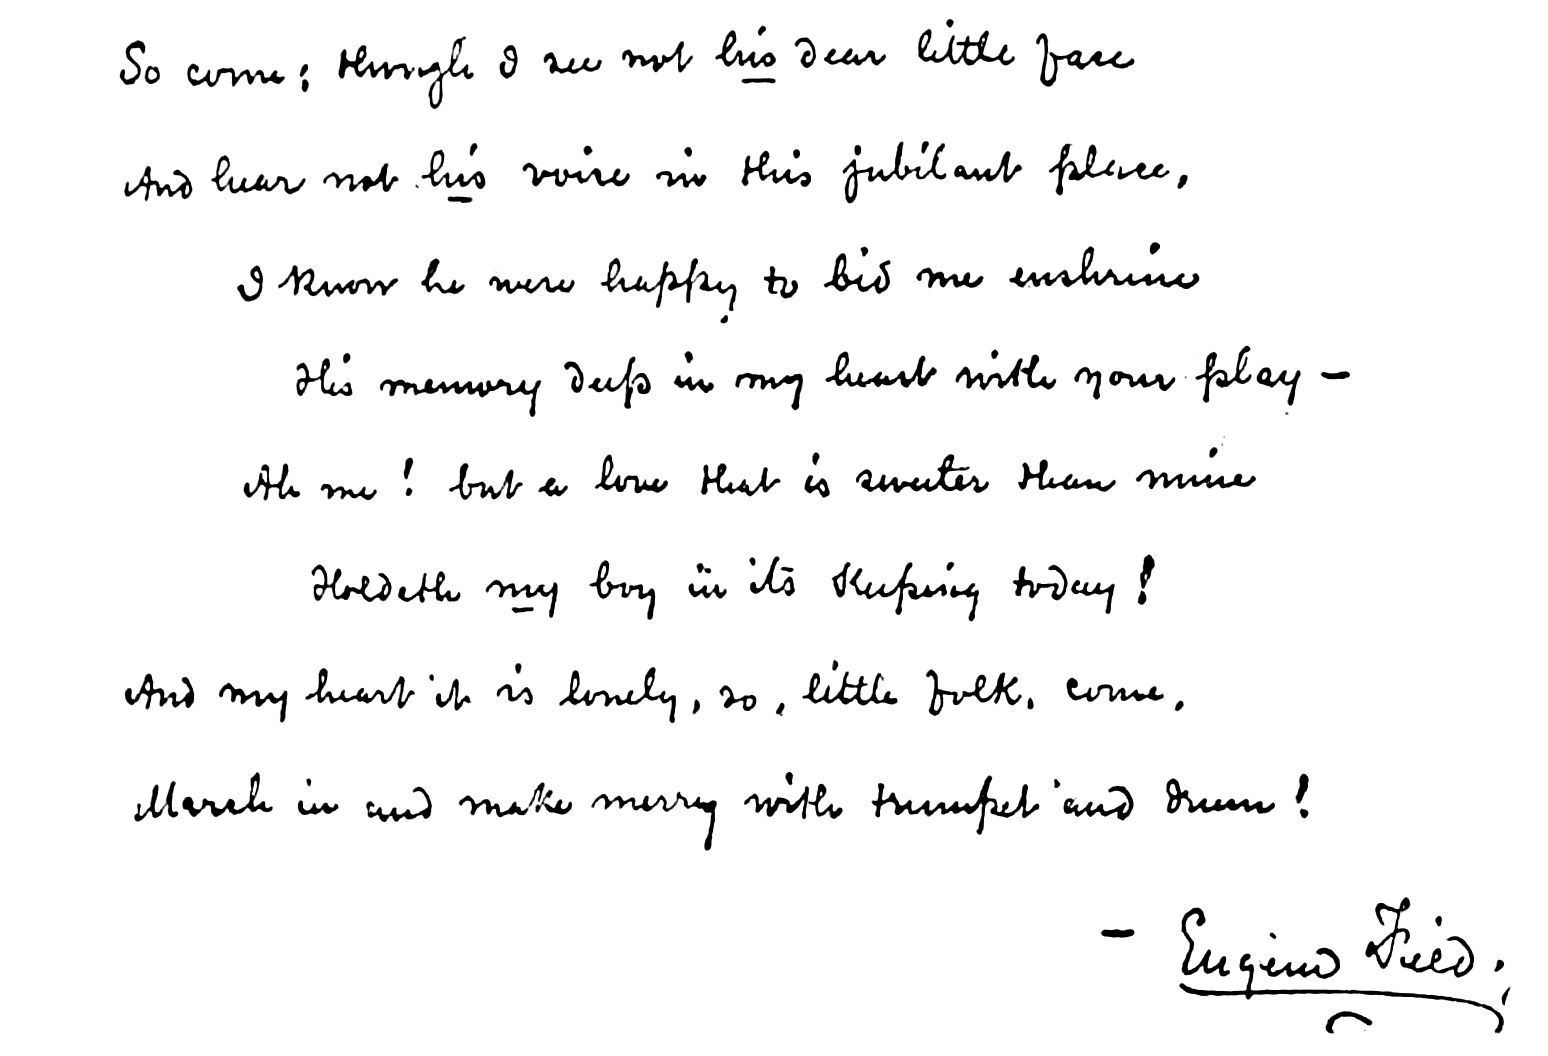 So come; though I see not his dear little face
And hear not his voice in this jubilant place,
I know he were happy to bid me enshrine
His memory deep in my heart with your play –
Ah me! but a love that is sweeter than mine
Holdeth my boy in its keeping today!
And my heart it is lonely, so, little folk, come,
March in and make merry with trumpet and drum!
– Eugene Field.